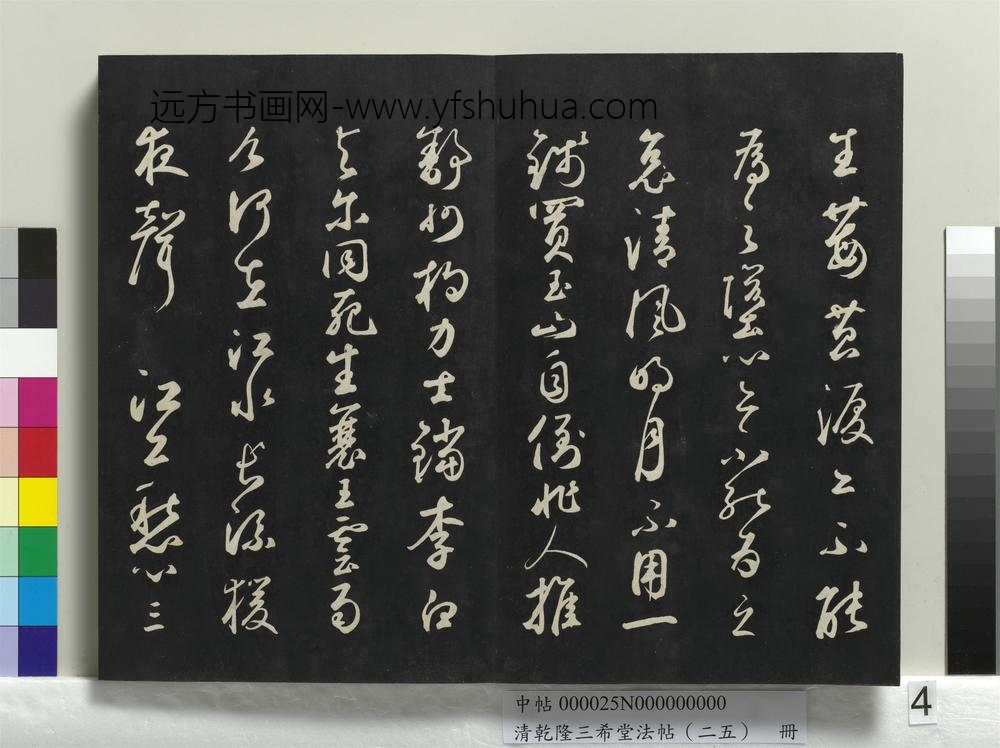 远方书画网-www.yfshuhua.com
生莓苔淚亦不能
為之墮心亦不能為之
哀清風明月不用一
錢買玉山自倒非人推
舒州杓力士鐺李白
與尔同死生襄王雲雨
今何在江水長流猿
夜聲 江上愁心三
中帖 000025N000000000
清乾隆三希堂法帖(二五) 冊
4